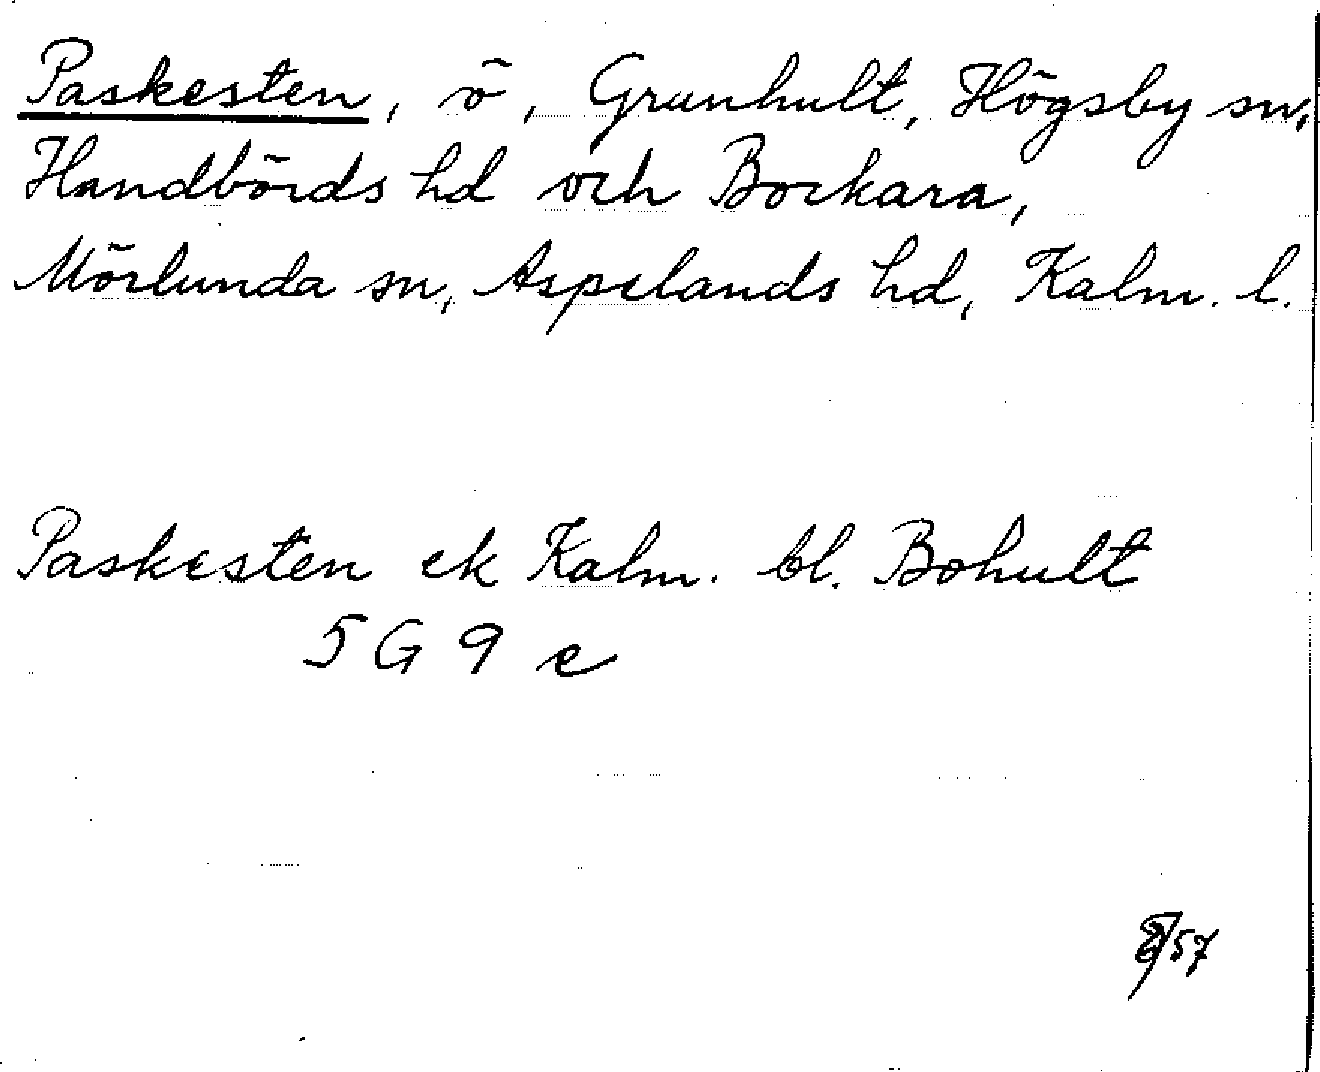 Paskesten, ö, Grunhult, Högsby sn,
Handbörds hd och Bockara,
Mörlunda sn, Aspelands hd, Kalm. l.
Paskesten ek Kalm. bl. Bohult
5 G 9 e
/57